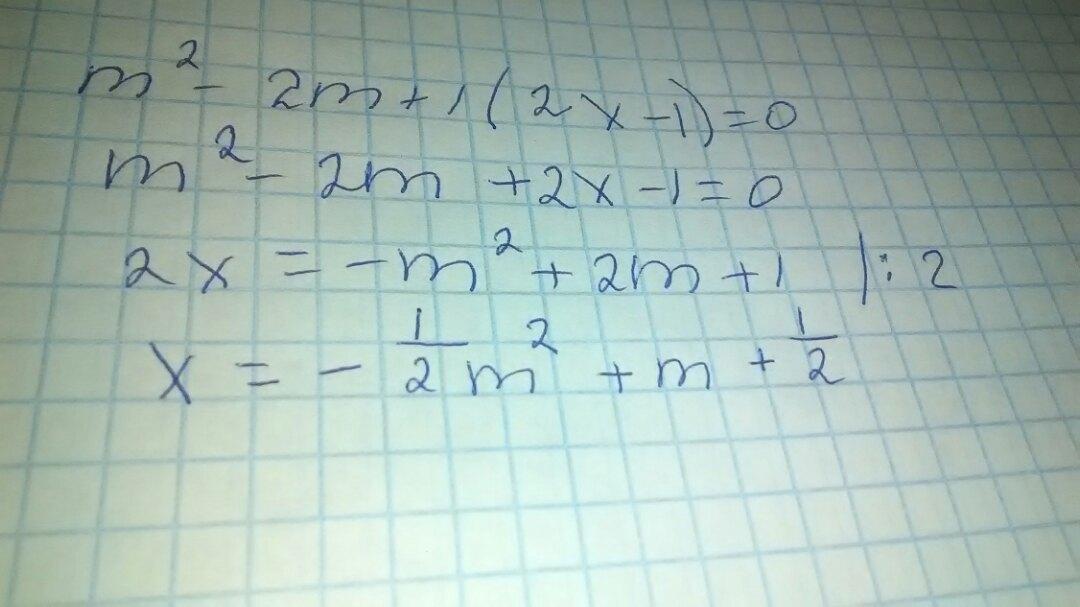 m² - 2m + 1(2x - 1) = 0
m² - 2m + 2x - 1 = 0
2x = -m² + 2m + 1 |: 2
x = - 1/2 m² + m + 1/2